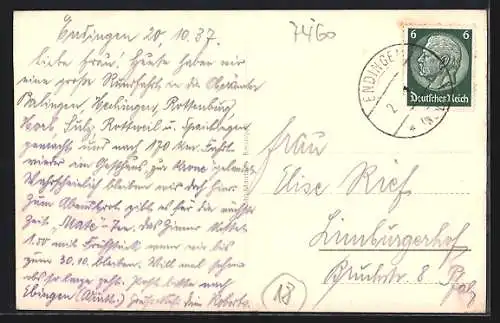 Endingen 20.10.37.
Liebe Frau! Heute haben wir
eine große Rundfahrt in die Oberämter
Balingen, Hechingen, Rottenburg,
Horb, Sulz, Rottweil u. Spaichingen
gemacht und nach 170 km Fahrt
wieder im Gasthaus zur Krone gelandet.
Wahrscheinlich bleiben wir doch hier.
Zum Abendbrot gibt es für die nächste
Zeit "Mate"-Tee. Das Zimmer kostet
1.00 mit Frühstück, wenn wir bis
zum 30.10. bleiben. Will mal sehen
ob es so lange geht. Post bitte nach
Ebingen (Württ.) Dein Robert
7460
ENDINGEN
6 6
Deutsches Reich
Frau
Elise Rief
Limburgerhof
Bruchstr. 8 Pfalz
18